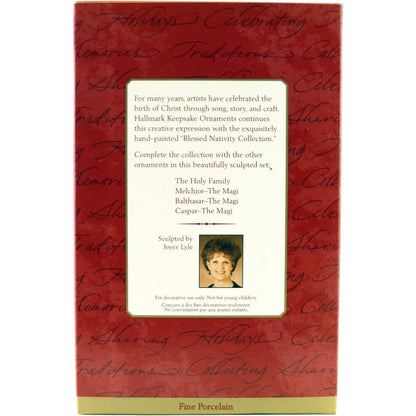 Holidays Celebrating
Traditions Collecting
Memories Sharing
For many years, artists have celebrated the
birth of Christ through song, story, and craft.
Hallmark Keepsake Ornaments continues
this creative expression with the exquisitely
hand-painted "Blessed Nativity Collection."
Complete the collection with the other
ornaments in this beautifully sculpted set:
The Holy Family
Melchior–The Magi
Balthasar–The Magi
Caspar–The Magi
Sculpted by
Joyce Lyle
For decorative use only. Not for young children.
Conçues à des fins décoratives seulement.
Ne conviennent pas aux jeunes enfants.
Sharing Holidays
Traditions Collecting
Fine Porcelain